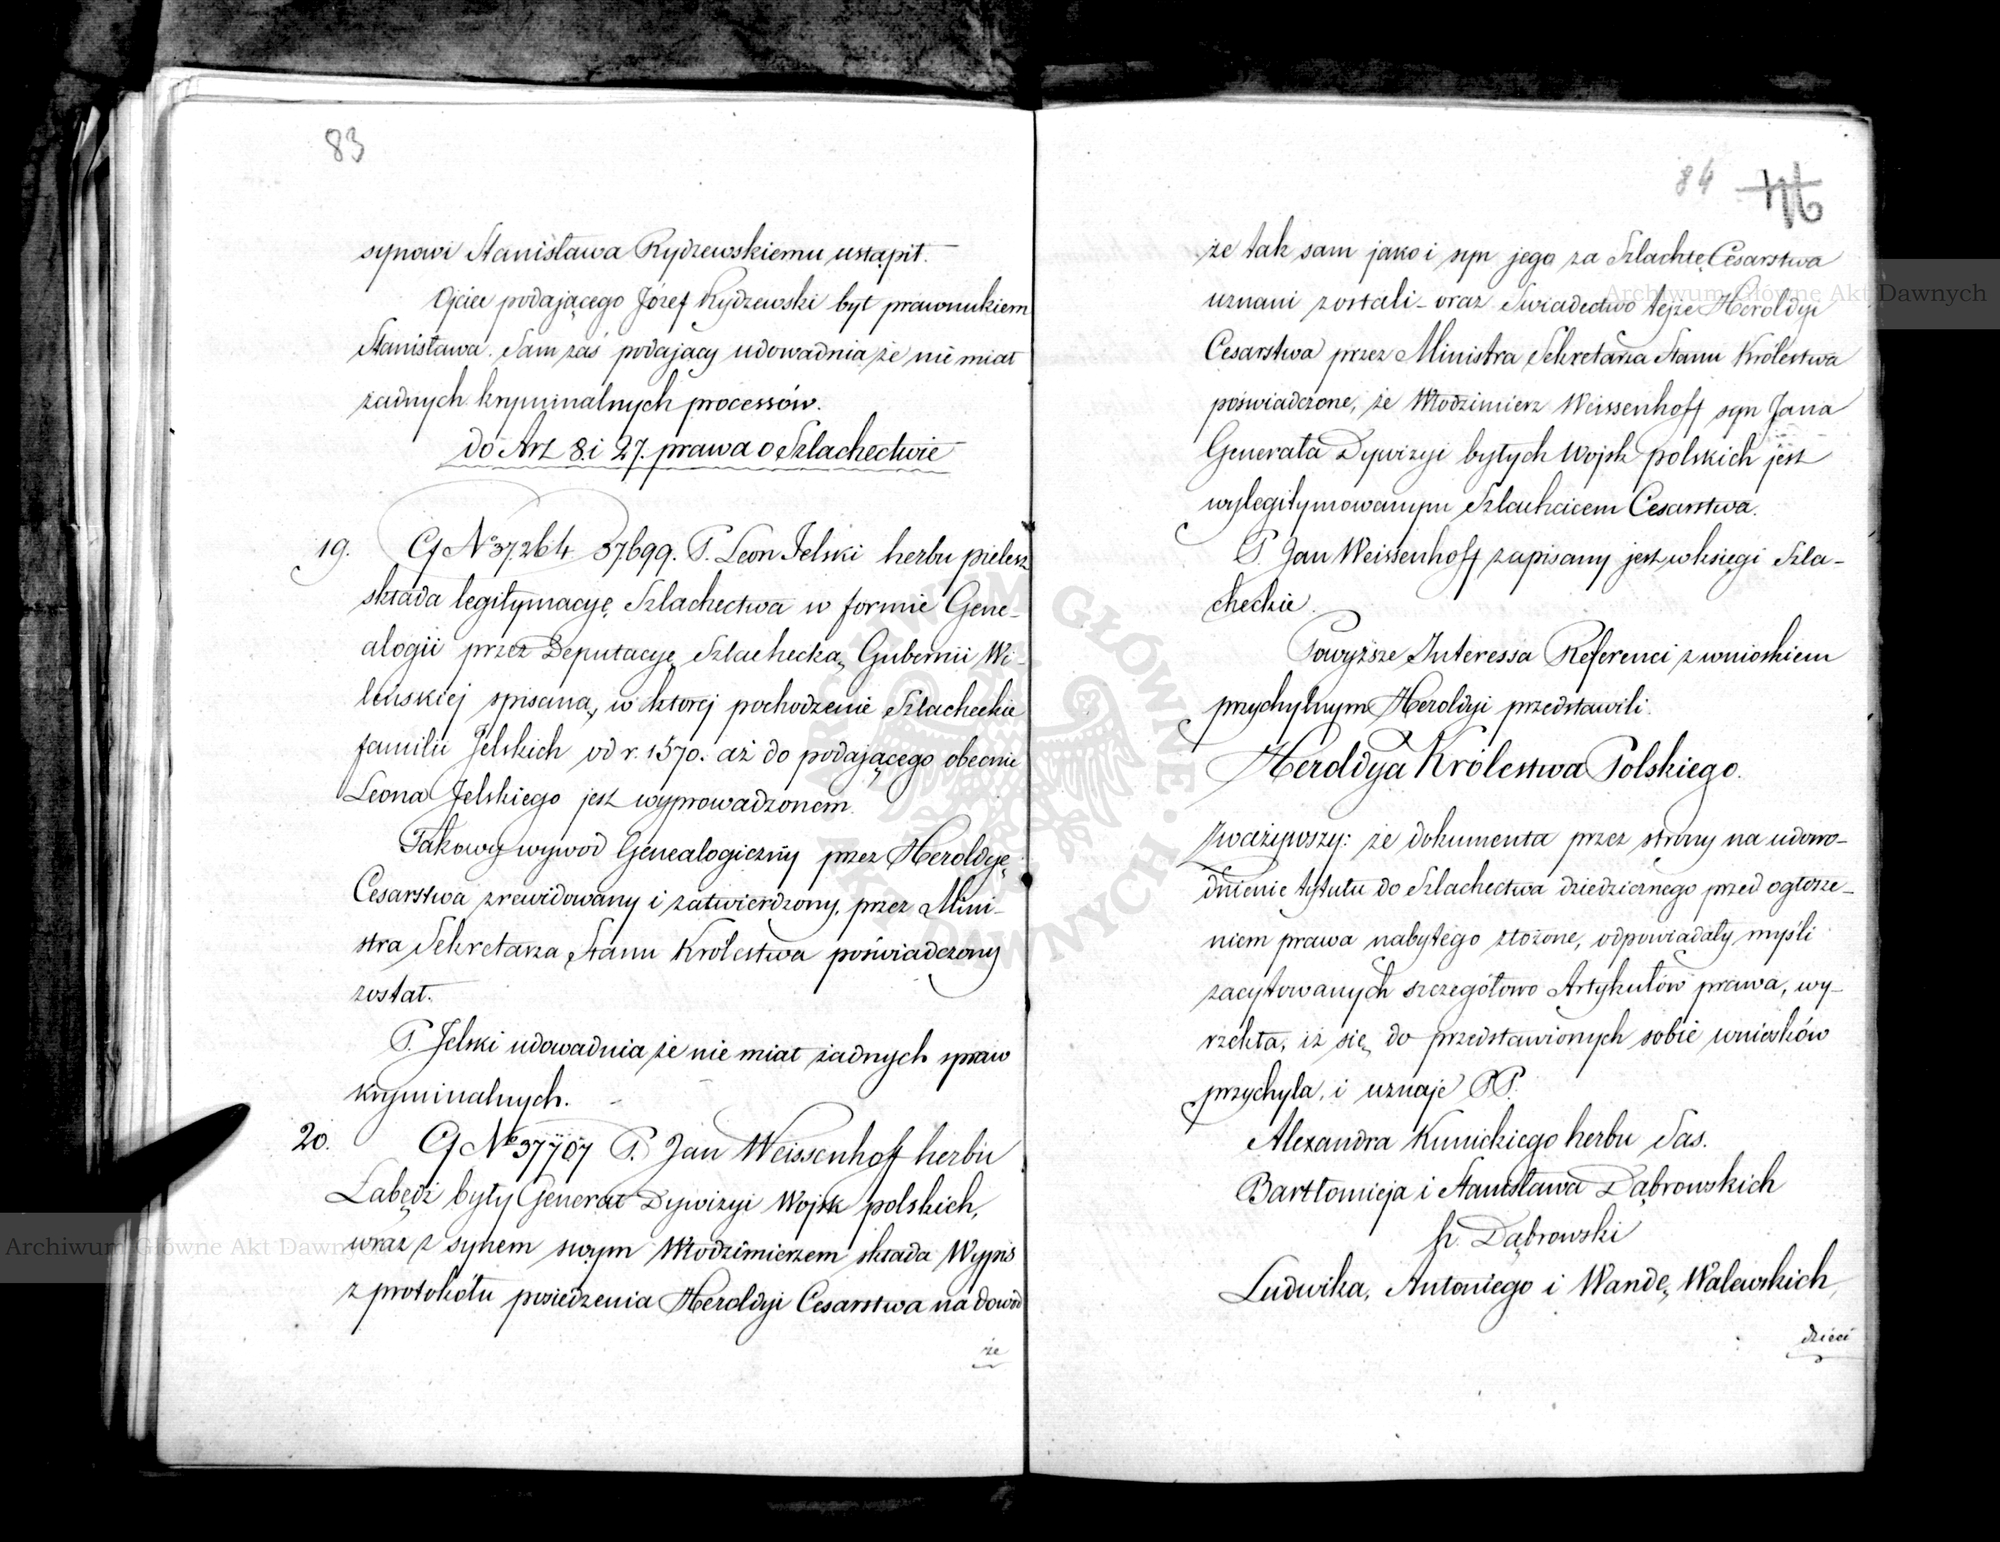 83
synowi Stanisława Rydzewskiemu ustąpił.
Ojciec podającego Józef Rydzewski był prawnukiem
Stanisława. Sam zaś podający udowadnia, że nie miał
żadnych kryminalnych processów.
do Art 8 i 27. prawa o Szlachectwie
19. N° 37264 37699. P. Leon Jelski herbu pielesz
składa legitymacyę Szlachectwa w formie Gene-
alogii przez Deputacyę Szlachecką Gubernii Wi-
leńskiej spisaną, w której pochodzenie Szlacheckie
familii Jelskich od r. 1570. aż do podającego obecnie
Leona Jelskiego jest wyprowadzonem.
Takowy wywod Genealogiczny przez Heroldyę
Cesarstwa zrewidowany i zatwierdzony, przez Mini-
stra Sekretarza Stanu Królestwa poświadczony
został.
P. Jelski udowadnia że nie miał żadnych spraw
kryminalnych.
20. N° 37707 P. Jan Weissenhoff herbu
Łabędź były Generał Dywizyi Wojsk polskich,
wraz z synem swym Włodzimierzem składa Wypis
z protokółu posiedzenia Heroldyi Cesarstwa na dowód
że
84
że tak sam jako i syn jego za Szlachtę Cesarstwa
uznani zostali - oraz Swiadectwo tejże Heroldyi
Cesarstwa przez Ministra Sekretarza Stanu Królestwa
poświadczone, że Włodzimierz Weissenhoff syn Jana
Generała Dywizyi byłych Wojsk polskich jest
wylegitymowanym Szlachcicem Cesarstwa.
P. Jan Weissenhoff zapisany jest w księgi Szla-
checkie.
Powyższe Interessa Referenci z wnioskiem
przychylnym Heroldyi przedstawili.
Heroldya Królestwa Polskiego.
Zważywszy: że dokumenta przez strony na udowo-
dnienie tytułu do Szlachectwa dziedzicznego przed ogłosze-
niem prawa nabytego złożone, odpowiadały myśli
zacytowanych szczegółowo Artykułów prawa, wy-
rzekła, iż się do przedstawionych sobie wniosków
przychyla, i uznaje PP.
Alexandra Kunickiego herbu Sas.
Bartłomieja i Stanisława Dąbrowskich
h. Dąbrowski
Ludwika, Antoniego i Wandę Walewskich,
dzieci
Archiwum Główne Akt Dawnych
Archiwum Główne Akt Dawnych
ARCHIWUM GŁÓWNE AKT DAWNYCH